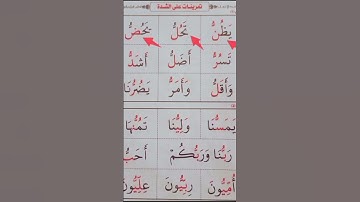 تمرينات على الشدة
يَظُنُّ تَحُلُّ يَحُضُّ
تَسُرُّ أَضَلُّ أَشَدُّ
وَأَقَلُّ وَأَمَرُّ يَضُرُّنَا
يَمَسُّنَا وَلِيُّنَا تَمُنُّهَا
رَبُّنَا وَرَبُّكُمْ أَحَبُّ
أُمِّيُّونَ رِبِّيُّونَ عِلِّيُّونَ